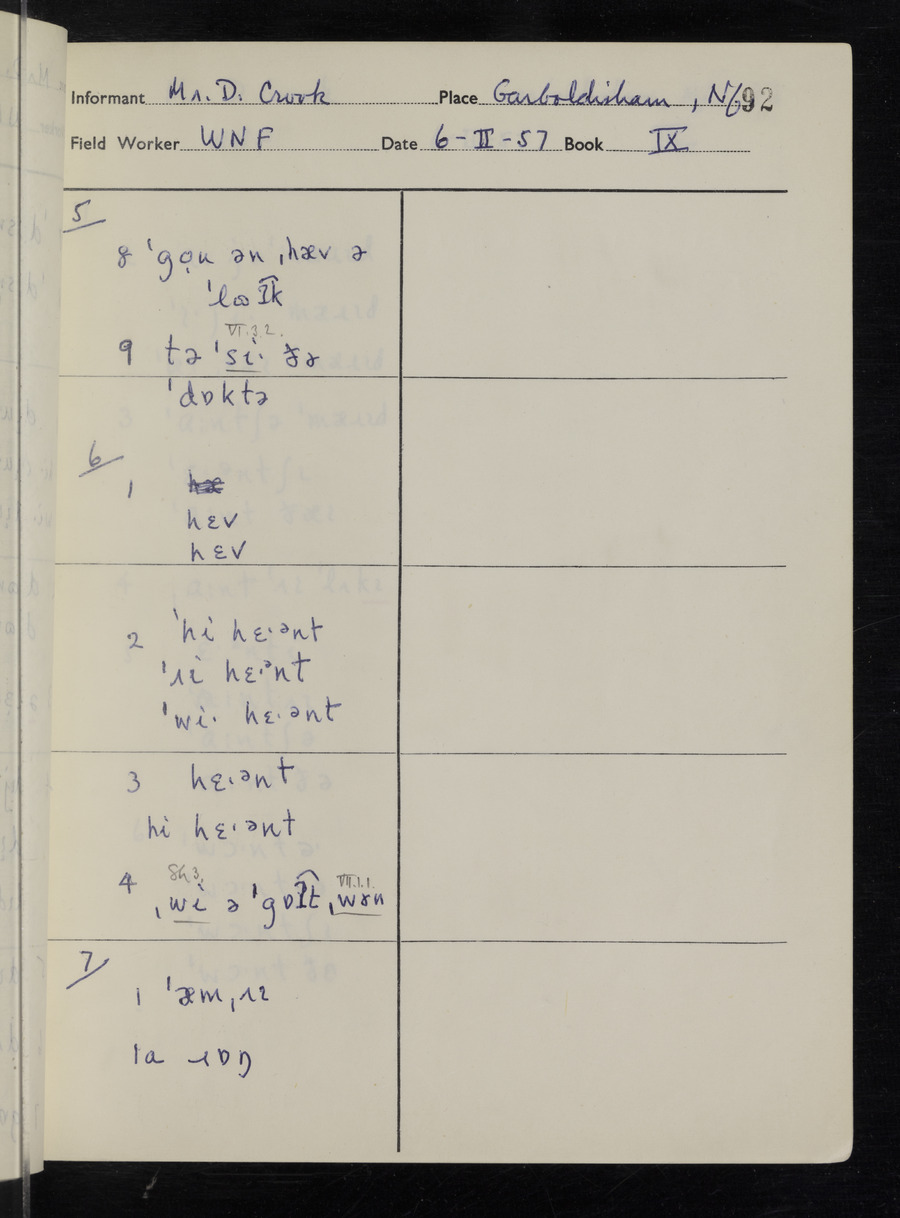 Informant Mr. D. Crook Place Garboldisham, Nf 92
Field Worker WNF Date 6-II-57 Book IX
5
8 ˈgọu ən ˌhæv ə
ˈlʊʔ͡k
VI.3.2.
9 tə ˈsi· ðə
ˈdɒktə
6
1
hɛv
hɛv
2 ˈhi hɛ·ənt
ˈɹi hɛ·ənt
ˈwi· hɛ·ənt
3 hɛ·ənt
hi hɛ·ənt
Sh3. VII.1.1.
4 ˌwi ə ˈgɒʔ͡t ˌwɤn
7
1 ˈæmˌɹɪ
1a ɹɒŋ